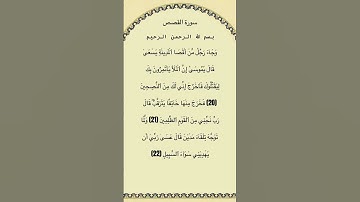 سورة القصص
بسم الله الرحمن الرحيم
وَجَاءَ رَجُلٌ مِّنْ أَقْصَا الْمَدِينَةِ يَسْعَىٰ
قَالَ يَٰمُوسَىٰٓ إِنَّ الْمَلَأَ يَأْتَمِرُونَ بِكَ
لِيَقْتُلُوكَ فَاخْرُجْ إِنِّي لَكَ مِنَ النَّٰصِحِينَ
(20) فَخَرَجَ مِنْهَا خَائِفًا يَتَرَقَّبُ قَالَ
رَبِّ نَجِّنِي مِنَ الْقَوْمِ الظَّٰلِمِينَ (21) وَلَمَّا
تَوَجَّهَ تِلْقَاءَ مَدْيَنَ قَالَ عَسَىٰ رَبِّي أَن
يَهْدِيَنِي سَوَاءَ السَّبِيلِ (22)